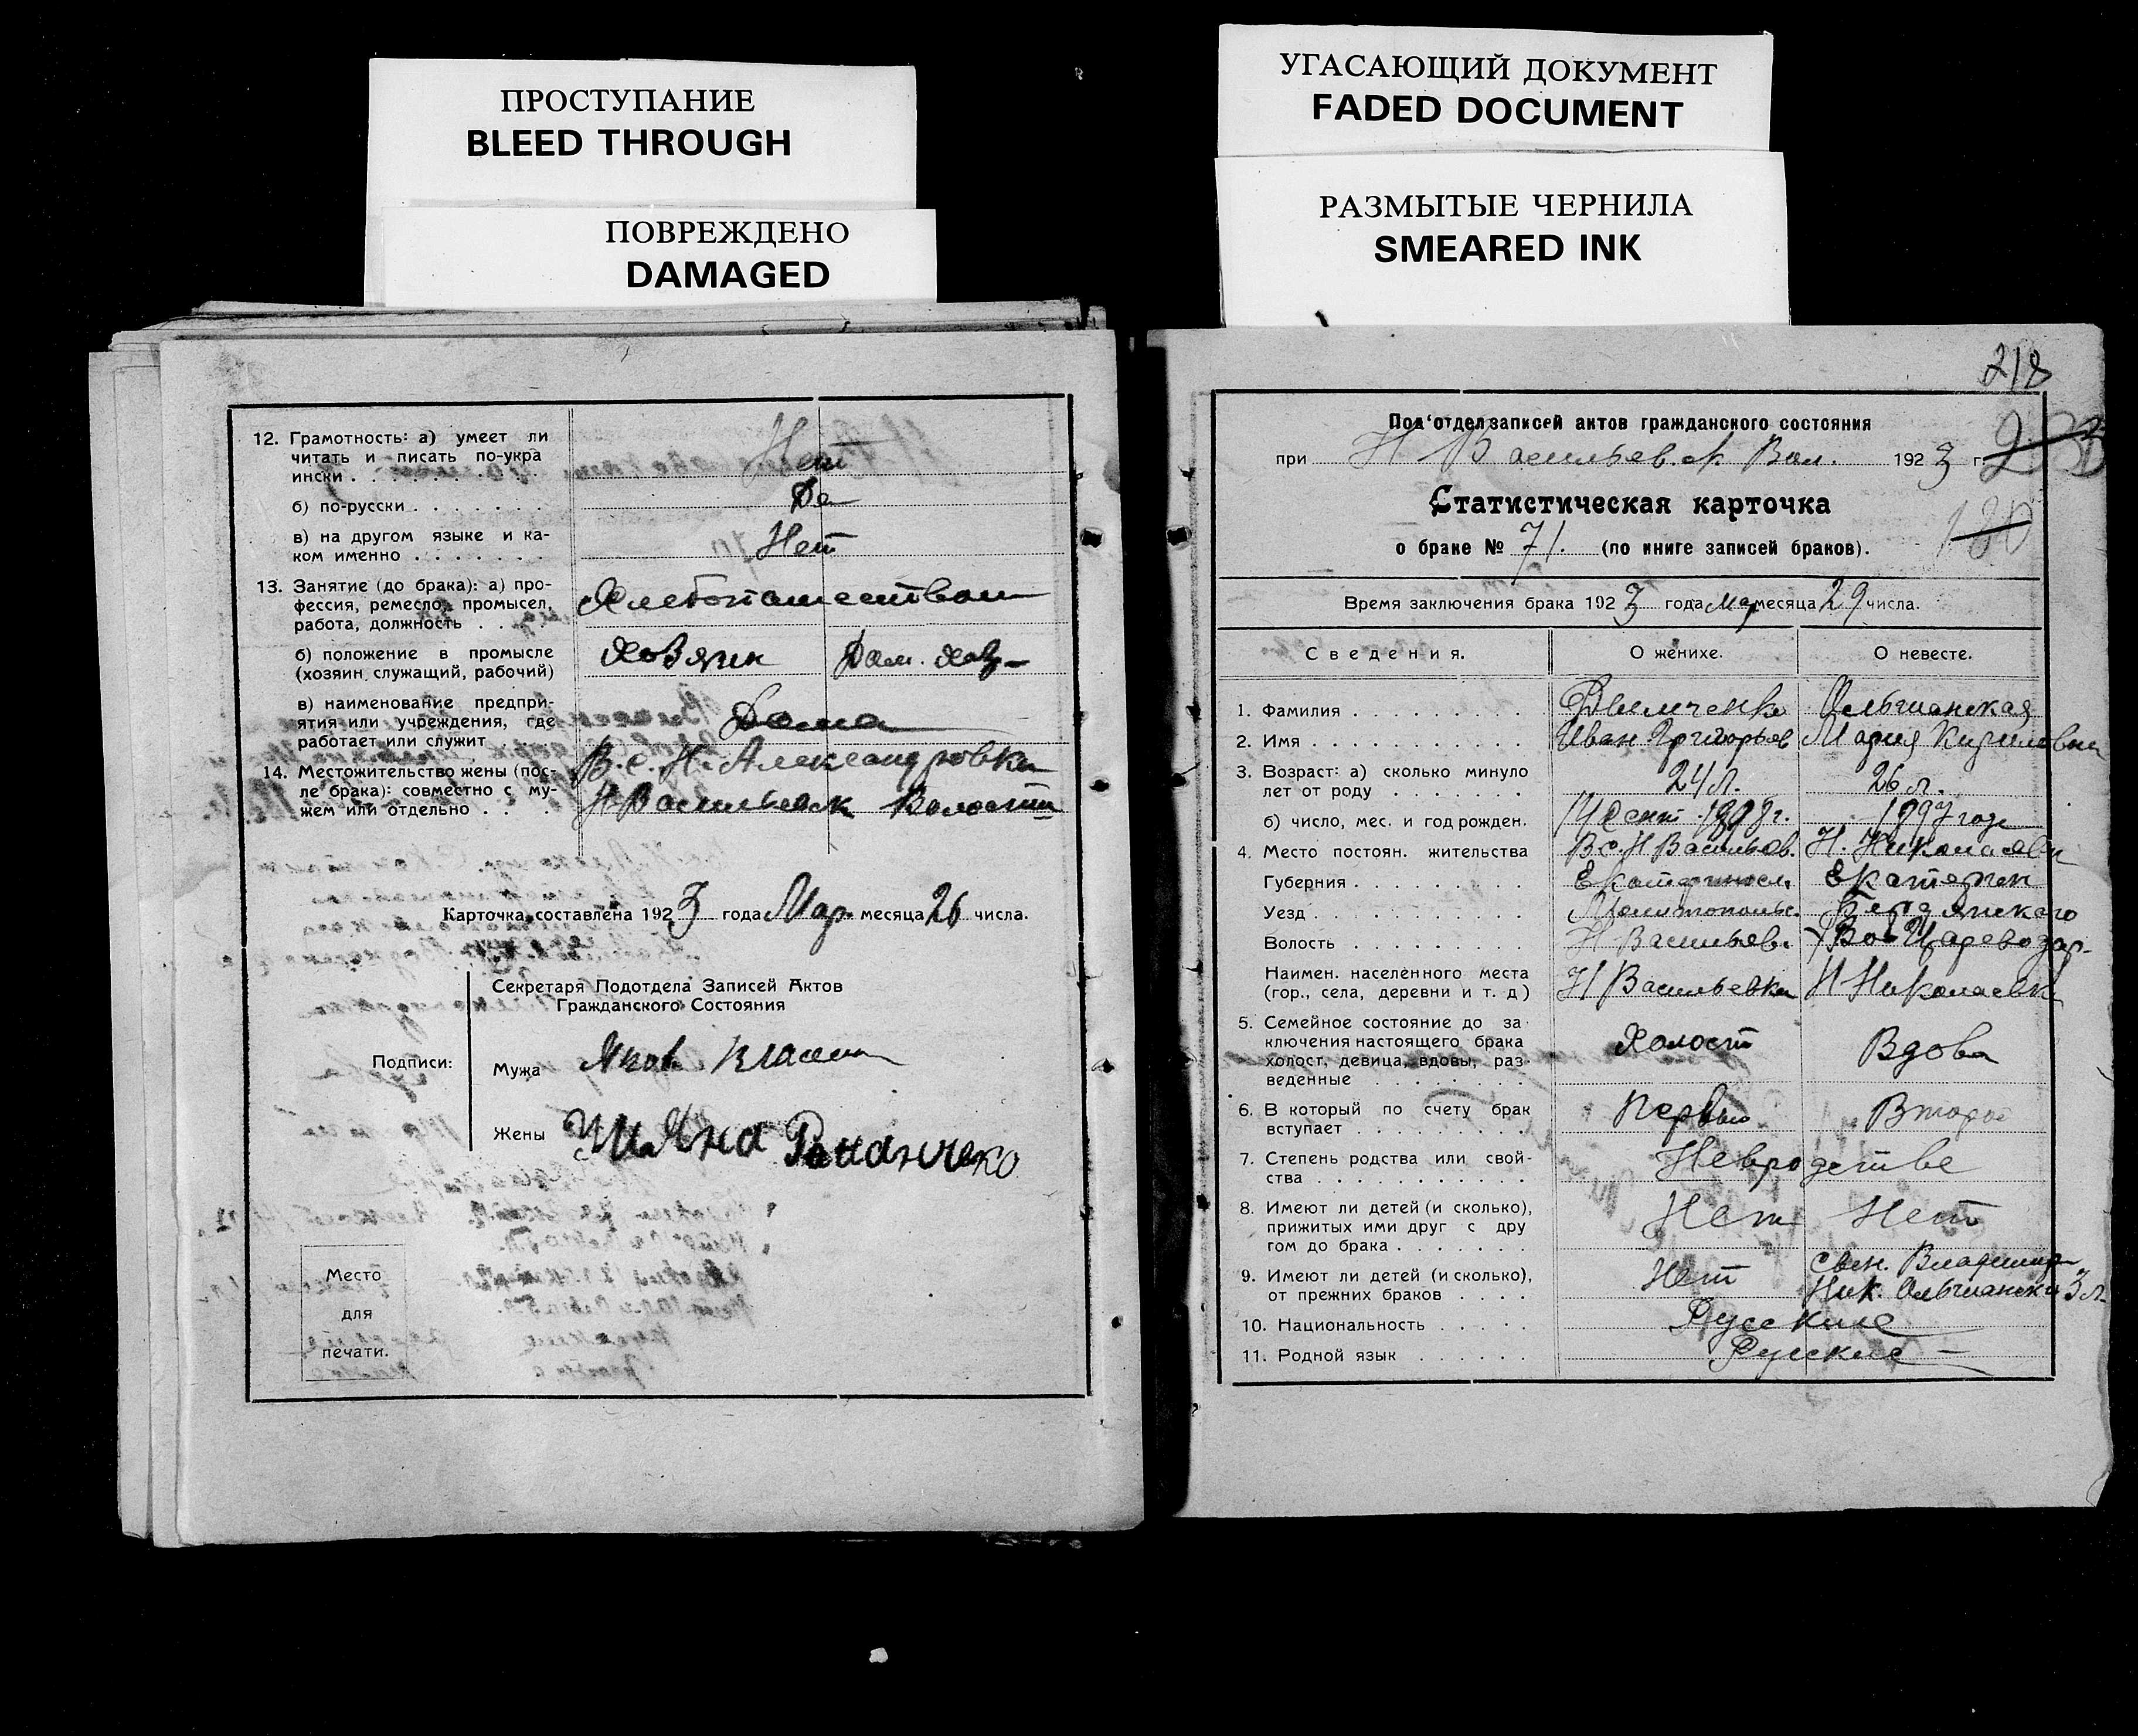 ПРОСТУПАНИЕ
BLEED THROUGH
ПОВРЕЖДЕНО
DAMAGED
УГАСАЮЩИЙ ДОКУМЕНТ
FADED DOCUMENT
РАЗМЫТЫЕ ЧЕРНИЛА
SMEARED INK
12. Грамотность: а) умеет ли
читать и писать по-укра
ински . . . Нет
б) по-русски . . . Да
в) на другом языке и ка-
ком именно . . . Нет
13. Занятие (до брака): а) про-
фессия, ремесло, промысел,
работа, должность . . . Хлебопашеством
б) положение в промысле
(хозяин, служащий, рабочий) Хозяин Дом. хоз-
в) наименование предпри-
ятия или учреждения, где
работает или служит Дома
14. Местожительство жены (пос-
ле брака): совместно с му-
жем или отдельно . . . В. с. Н. Александровка
Н Васильевск Волости
Карточка составлена 1923 года Мар. месяца 26 числа.
Секретаря Подотдела Записей Актов
Гражданского Состояния
Подписи:
Мужа Яков
Жены
Место
для
печати.
218
Под'отдел записей актов гражданского состояния
при Н Васильев. Вол. 1923 г.
233
Статистическая карточка
180
о браке № 71. (по книге записей браков).
Время заключения брака 1923 года Мар месяца 29 числа.
Сведения. О женихе. О невесте.
1. Фамилия . . . Ольшанская
2. Имя . . . Иван Григорьев Мария Кириловна
3. Возраст: а) сколько минуло
лет от роду . . . 24 л. 26 л.
б) число, мес. и год рожден. 14 сент. 1898 г. 1897 года
4. Место постоян. жительства В с. Н Васильев. Н. Николаевки
Губерния . . . Екатериносл. Екатерин
Уезд . . . Мелитопольс. Бердянского
Волость . . . Н Васильев. Вол Цареводар-
Наимен. населенного места
(гор., села, деревни и т. д) Н Васильевка Н Николаевка
5. Семейное состояние до за
ключения настоящего брака
холост, девица, вдовы, раз-
веденные . . . Холост Вдова
6. В который по счету брак
вступает . . . Первый Второй
7. Степень родства или свой-
ства . . . Не в родстве
8. Имеют ли детей (и сколько),
прижитых ими друг с дру
гом до брака . . . Нет Нет
9. Имеют ли детей (и сколько),
от прежних браков . . . Нет Владимир
Ник. Ольшанский 3 л.
10. Национальность . . . Русские
11. Родной язык . . . Русские